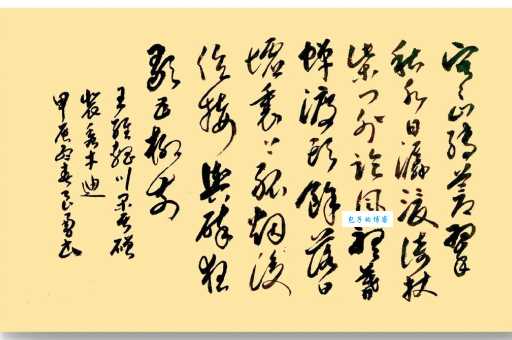 寒山轉蒼翠
秋水日潺湲倚杖
柴门外临風聽暮
蟬渡頭餘落日
墟里上孤烟復
值接輿醉狂
歌五柳前
王維輞川闲居贈
裴秀才迪
甲辰春勇书